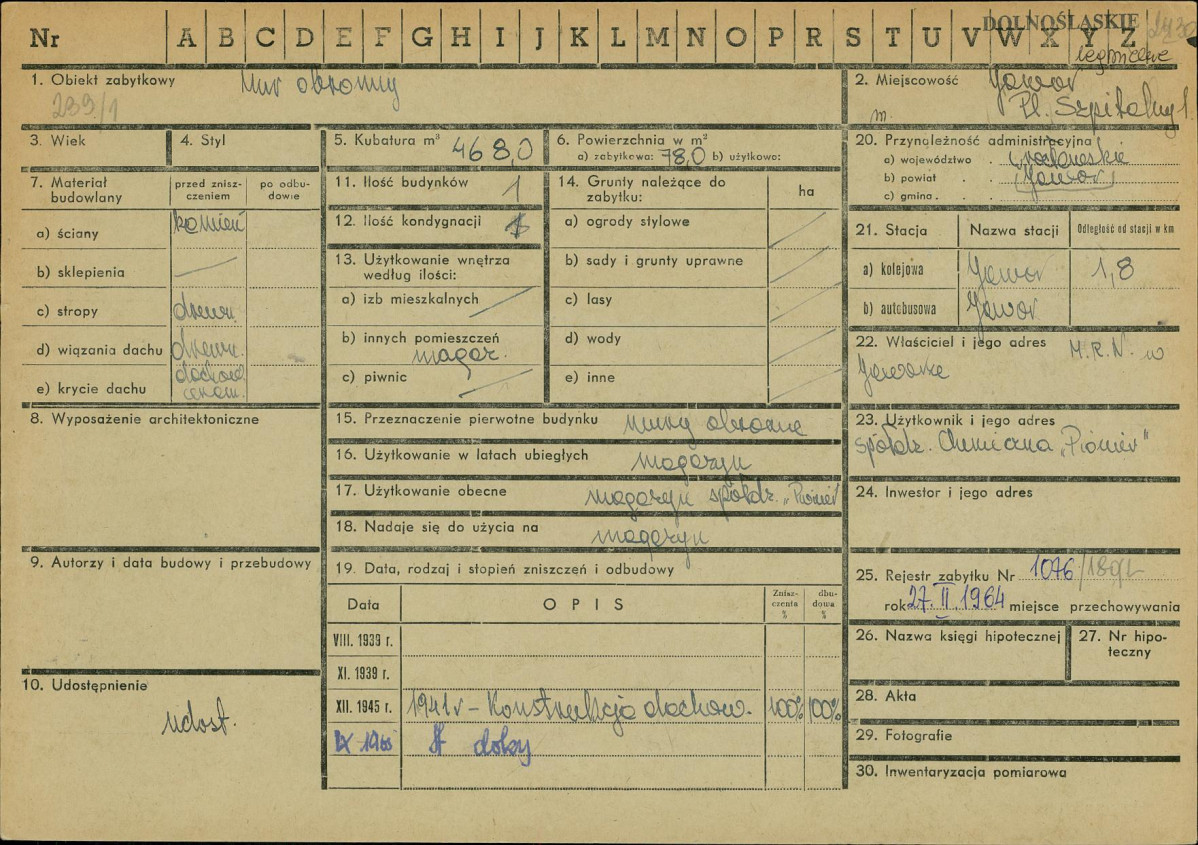 DOLNOŚLĄSKIE
Nr A B C D E F G H I J K L M N O P R S T U V W X Y Z
legnickie
1. Obiekt zabytkowy Mur obronny
239/1
2. Miejscowość Jawor
m. Pl. Szpitalny 1
3. Wiek
4. Styl
5. Kubatura m³ 468,0
6. Powierzchnia w m²
a) zabytkowa: 78,0 b) użytkowo:
7. Materiał budowlany
przed znisz-
czeniem
po odbu-
dowie
a) ściany kamień
b) sklepienia
c) stropy drewn.
d) wiązania dachu drewn.
e) krycie dachu dachów. ceram.
8. Wyposażenie architektoniczne
9. Autorzy i data budowy i przebudowy
10. Udostępnienie
udost.
11. Ilość budynków 1
12. Ilość kondygnacji 1
13. Użytkowanie wnętrza
według ilości:
a) izb mieszkalnych
b) innych pomieszczeń
magaz.
c) piwnic
14. Grunty należące do
zabytku:
ha
a) ogrody stylowe
b) sady i grunty uprawne
c) lasy
d) wody
e) inne
15. Przeznaczenie pierwotne budynku mury obronne
16. Użytkowanie w latach ubiegłych magazyn
17. Użytkowanie obecne magazyn spółdz. „Pionier"
18. Nadaje się do użycia na magazyn
19. Data, rodzaj i stopień zniszczeń i odbudowy
Data OPIS
Znisz-
czenia
%
dbu-
dowa
%
VIII. 1939 r.
XI. 1939 r.
XII. 1945 r. 1941 r – Konstrukcja dachow. 100% 100%
IX 1965 St dobry
20. Przynależność administracyjna
a) województwo . wrocławskie
b) powiat . . Jawor
c) gmina . . .
21. Stacja Nazwa stacji Odległość od stacji w km
a) kolejowa Jawor 1,8
b) autobusowa Jawor
22. Właściciel i jego adres M.R.N. w
Jaworze
23. Użytkownik i jego adres
spółdz. Chemiczna „Pionier"
24. Inwestor i jego adres
25. Rejestr zabytku Nr 1076/189/L
rok 27.II.1964 miejsce przechowywania
26. Nazwa księgi hipotecznej
27. Nr hipo-
teczny
28. Akta
29. Fotografie
30. Inwentaryzacja pomiarowa